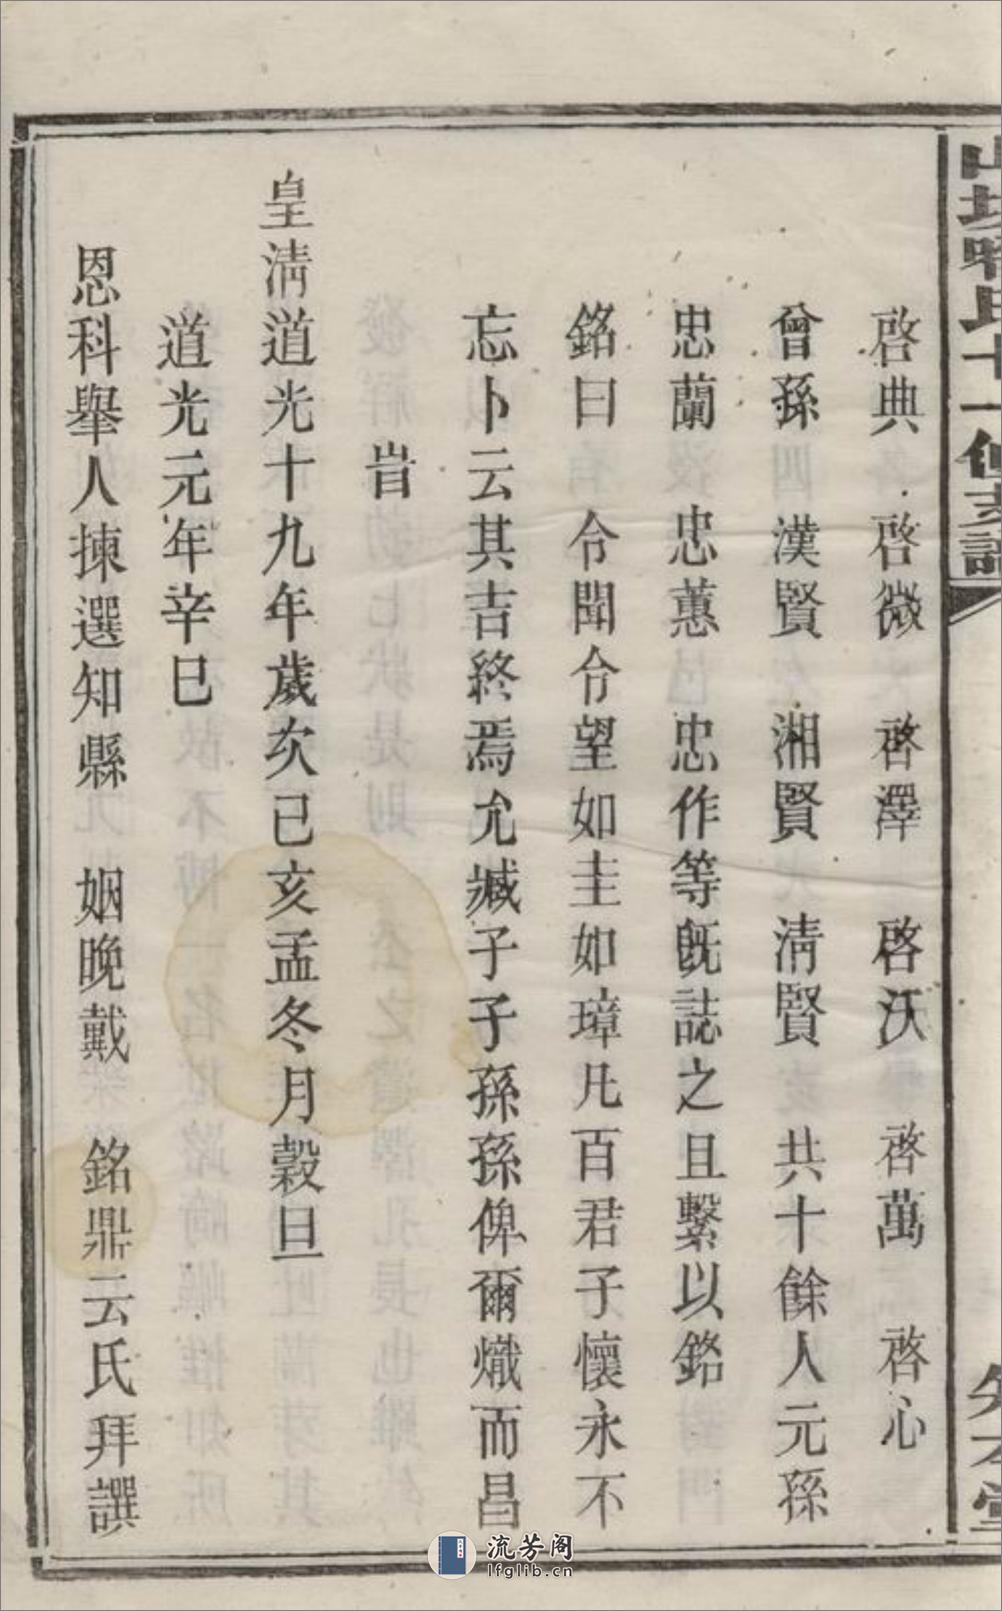 啓典 啓微 啓澤 啓沃 啓萬 啓心
曾孫 漢賢 湘賢 淸賢 共十餘人元孫
忠蘭 忠蕙 忠作等旣誌之且繫以銘
銘曰 令聞令望如圭如璋凡百君子懷永不
忘卜云其吉終焉允臧子子孫孫俾爾熾而昌
旹
皇淸道光十九年歲次己亥孟冬月穀旦
道光元年辛巳
恩科舉人揀選知縣 姻晚戴 銘鼎云氏拜譔
流芳阁
lfglib.cn